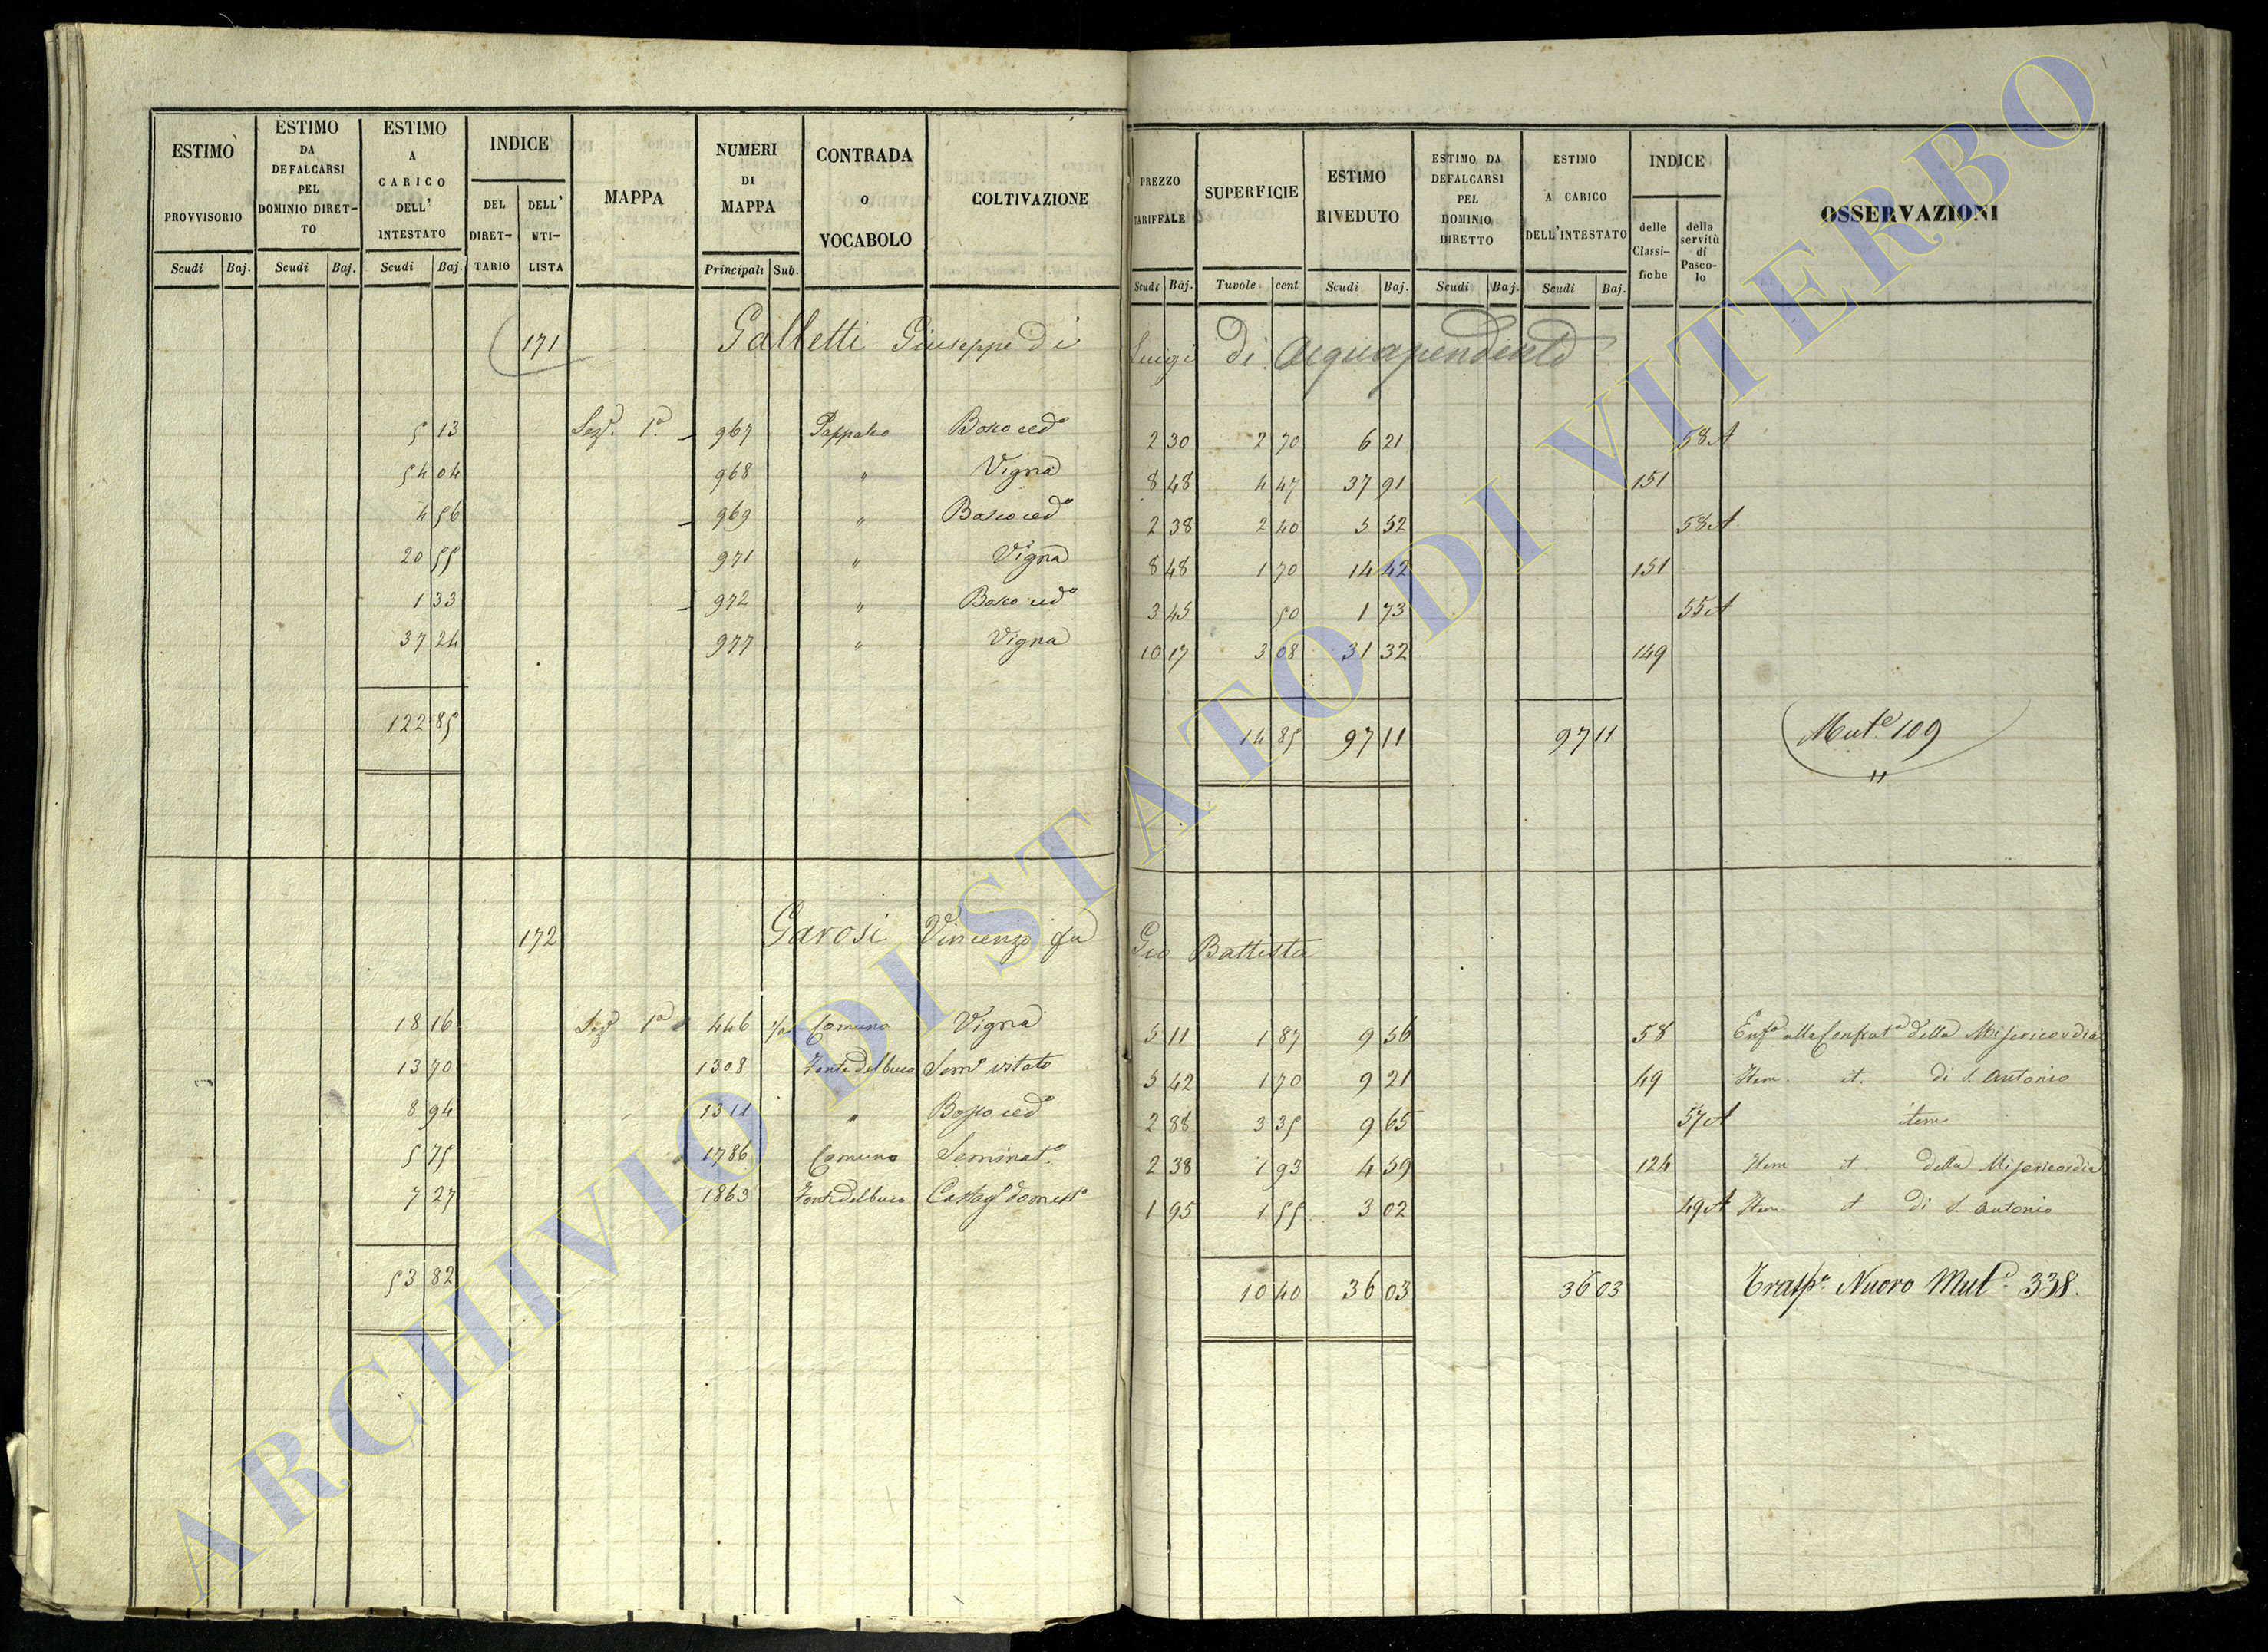 ESTIMO PROVVISORIO
ESTIMO DA DEFALCARSI PEL DOMINIO DIRETTO
ESTIMO A CARICO DELL' INTESTATO
INDICE
DEL DIRETTARIO
DELL' UTILISTA
MAPPA
NUMERI DI MAPPA
CONTRADA O VOCABOLO
COLTIVAZIONE
PREZZO TARIFFALE
SUPERFICIE
ESTIMO RIVEDUTO
ESTIMO DA DEFALCARSI PEL DOMINIO DIRETTO
ESTIMO A CARICO DELL'INTESTATO
INDICE
delle Classifiche
della servitù di Pascolo
OSSERVAZIONI
Scudi Baj. Scudi Baj. Scudi Baj. Principali Sub. Scudi Baj. Tavole cent Scudi Baj. Scudi Baj. Scudi Baj.
171 Galletti Giuseppe di Luigi di Acquapendente
5 13 Sezᵉ. 1ª. 967 Boscocedº 2 30 2 70 6 21 58 A
54 04 968 " Vigna 8 48 4 47 37 91 151
4 56 969 " Boscocedº 2 38 2 40 5 52 58 A
20 55 971 " Vigna 8 48 1 70 14 42 151
1 33 972 " Bosco cedº 3 45 50 1 73 55 A
37 24 977 " Vigna 10 17 3 08 31 32 149
122 85 14 85 97 11 97 11 Mutᵉ 109
"
172 Garosi Vincenzo fu Gio Battista
18 16 Sezᵉ 1ª 446 Comuno Vigna 5 11 1 87 9 56 58 Enfª alla Confratª della Misericordia
13 70 1308 Fonte del buco Semº vitato 5 42 1 70 9 21 49 Item it. di S. Antonio
8 94 1311 " Bosco cedº 2 88 3 35 9 65 57 A item
5 75 1786 Comuno Seminatº 2 38 1 93 4 59 124 Item it della Misericordia
7 27 1863 Fonte del buco Castagº domestº 1 95 1 55 3 02 49 A Item it di S. Antonio
53 82 10 40 36 03 36 03 Traspº. Nuovo Mutº. 338.
ARCHIVIO DI STATO DI VITERBO